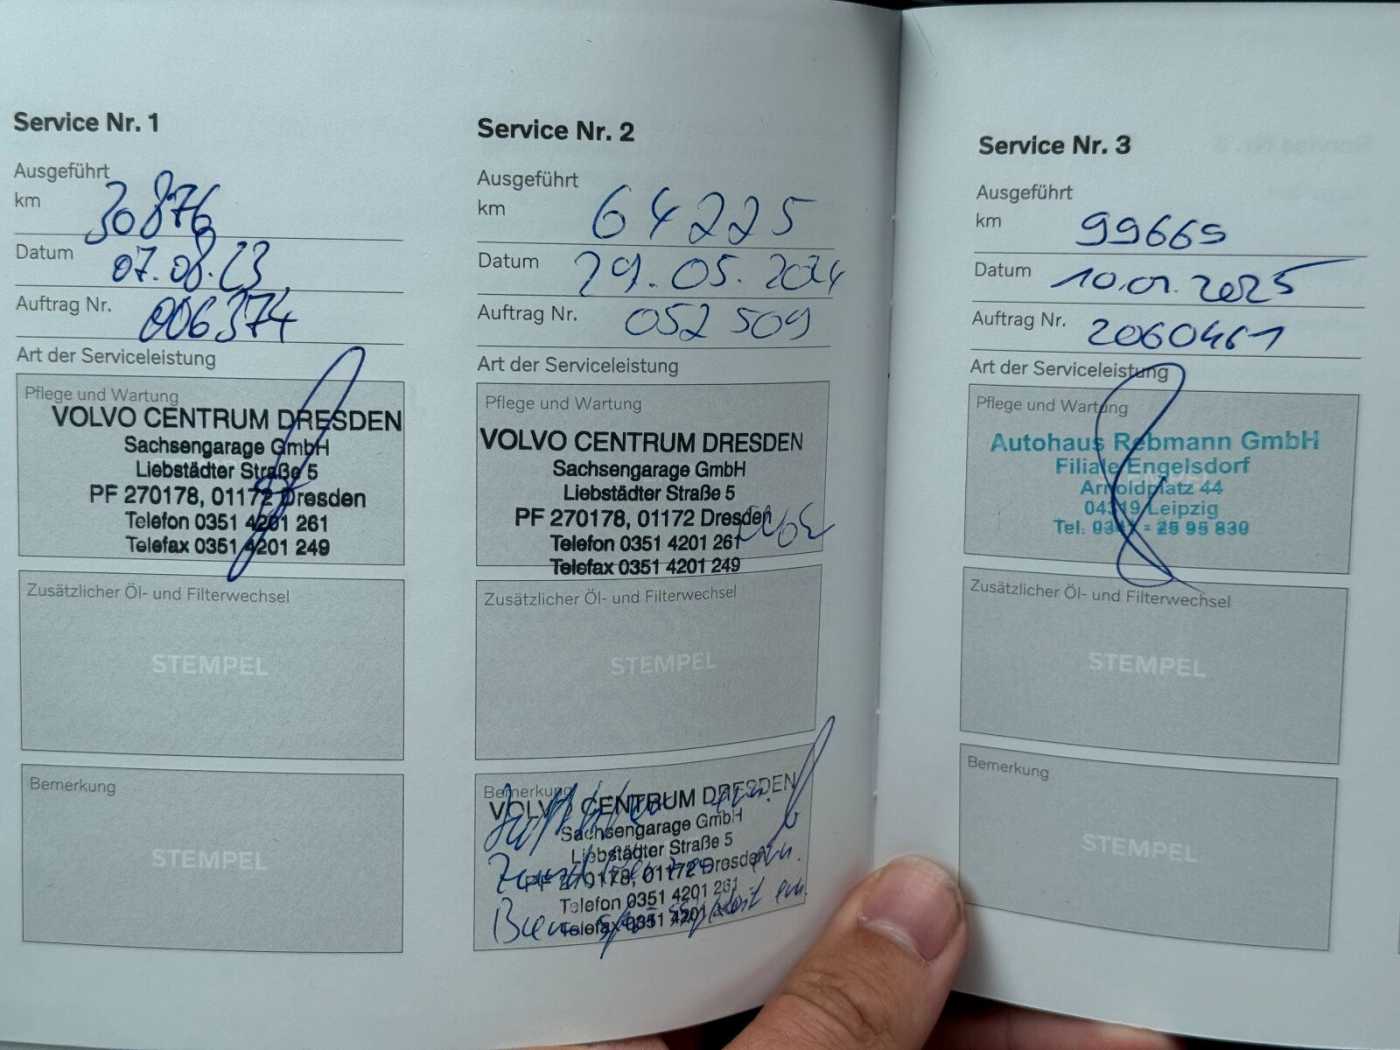 Service Nr. 1
Ausgeführt
km 30876
Datum 07.08.23
Auftrag Nr. 006374
Art der Serviceleistung
Pflege und Wartung
VOLVO CENTRUM DRESDEN
Sachsengarage GmbH
Liebstädter Straße 5
PF 270178, 01172 Dresden
Telefon 0351 4201 261
Telefax 0351 4201 249
Zusätzlicher Öl- und Filterwechsel
STEMPEL
Bemerkung
STEMPEL
Service Nr. 2
Ausgeführt
km 64225
Datum 29.05.2024
Auftrag Nr. 052 509
Art der Serviceleistung
Pflege und Wartung
VOLVO CENTRUM DRESDEN
Sachsengarage GmbH
Liebstädter Straße 5
PF 270178, 01172 Dresden
Telefon 0351 4201 261
Telefax 0351 4201 249
Zusätzlicher Öl- und Filterwechsel
STEMPEL
Bemerkung
VOLVO CENTRUM DRESDEN
Sachsengarage GmbH
Liebstädter Straße 5
PF 270178, 01172 Dresden
Telefon 0351 4201 261
Telefax 0351 4201
Service Nr. 3
Ausgeführt
km 99665
Datum 10.01.2025
Auftrag Nr. 2060461
Art der Serviceleistung
Pflege und Wartung
Autohaus Rebmann GmbH
Filiale Engelsdorf
Arnoldplatz 44
04319 Leipzig
Tel. 0341 - 25 95 830
Zusätzlicher Öl- und Filterwechsel
STEMPEL
Bemerkung
STEMPEL